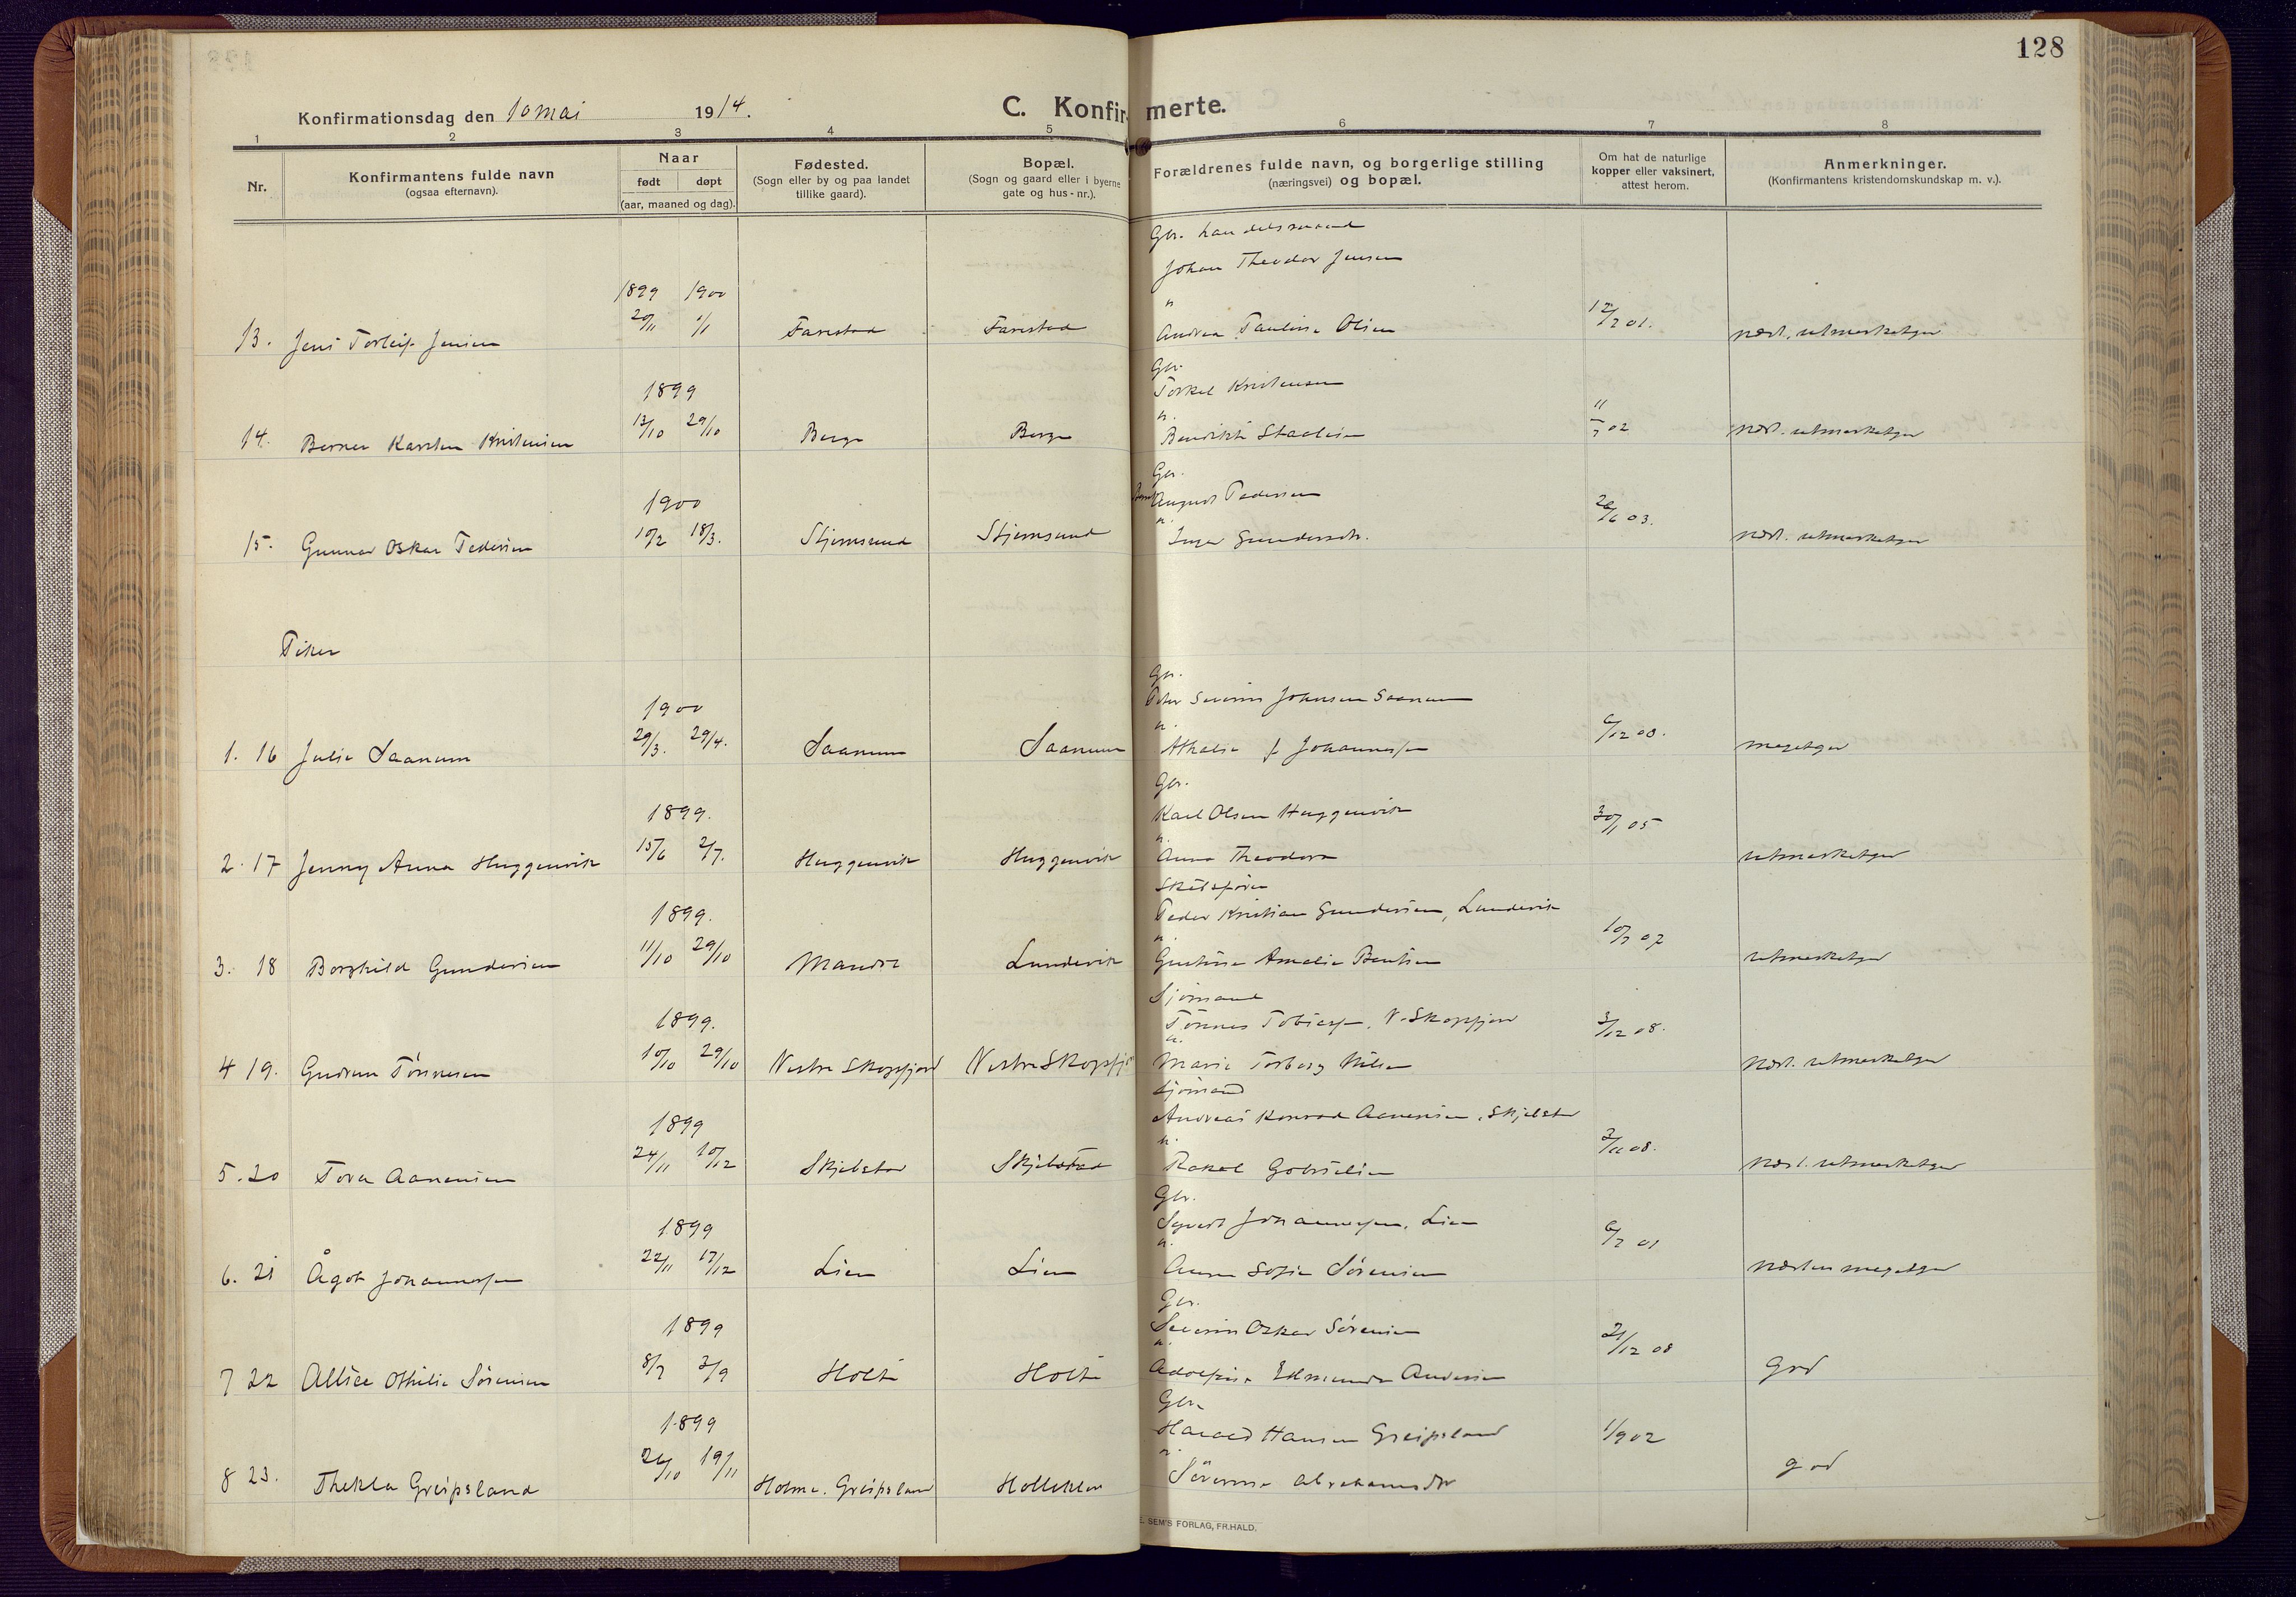 128
Konfirmationsdag den 10 mai 1914.
C. Konfirmerte.
1 2 3 4 5 6 7 8
Nr.
Konfirmantens fulde navn
(ogsaa efternavn).
Naar
født døpt
(aar, maaned og dag).
Fødested.
(Sogn eller by og paa landet
tillike gaard).
Bopæl.
(Sogn og gaard eller i byerne
gate og hus-nr.).
Forældrenes fulde navn, og borgerlige stilling
(næringsvei) og bopæl.
Om hat de naturlige
kopper eller vaksinert,
attest herom.
Anmerkninger.
(Konfirmantens kristendomskundskap m. v.).
Gbr. handelsmand
Johan Theodor Jensen
1899 1900
13. Jens Torleif Jensen 20/11 1/1 Farestad Farestad
Andrea Pauline Olsen 12/7 01. næst. utmerketgod
Gbr.
1899 Torkel Kristensen
14. Berner Karsten Kristensen 13/10 29/10 Berge Berge
Bendikte Staalesen 11/7 02 næst. utmerketgod
Gbr.
1900 August Pedersen
15. Gunnar Oskar Pedersen 10/2 18/3. Stjernsund Stjernsund
Inger Gundersdtr. 26/6 03. næst. utmerketgod
Piker
Gbr.
1900 Peter Severin Johnsen Saanum
u.
1. 16 Julie Saanum 29/3. 29/4. Saanum Saanum Athalie f Johannessen 6/12 00. megetgod
Gbr.
1899. Karl Olsen Huggenvik
u.
2. 17 Jenny Anna Huggenvik 15/6 2/7. Huggenvik Huggenvik Anna Theodora 30/1 05 utmerketgod
Skibsfører
1899. Peder Kristian Gundersen, Lundevik
u.
3. 18 Borghild Gundersen 11/10 29/10 Mandal Lundevik Gustava Amalie Bentsen 10/7 07 utmerketgod
Sjømand
1899. Tønnes Tobiassen, V. Skogsfjord
u.
4 19. Gudrun Tønnesen 10/10 29/10 Vestre Skogsfjord Vestre Skogsfj Marie Torborg Nilsen 3/12 08. Næst. utmerketgod
Sjømand
1899 Andreas Konrad Aanensen, Skjelstad
u.
5. 20 Tora Aanensen 24/11 10/12 Skjelstad Skjelstad Rakel Gabrielsen 2/11 08. Næst. utmerketgod
Gbr.
1899 Sigvart Johannessen, Lien
u.
6. 21 Ågot Johannessen 22/11 17/12 Lien Lien Anna Sofie Sørensen 6/7 01 næsten megetgod
Gbr.
1899 Severin Oskar Sørensen
u.
7 22 Allice Othilie Sørensen 8/7 3/9 Holte Holte Adolfine Edmunda Andersen 21/12 08 God
Gbr.
1899 Harald Hansen Greipsland
u.
8 23. Thekla Greipsland 26/10 19/11 Holme. Greipsland Holleklev Sørine Abrahamsdtr 1/9 02 god
E. SEM'S FORLAG, FR.HALD.